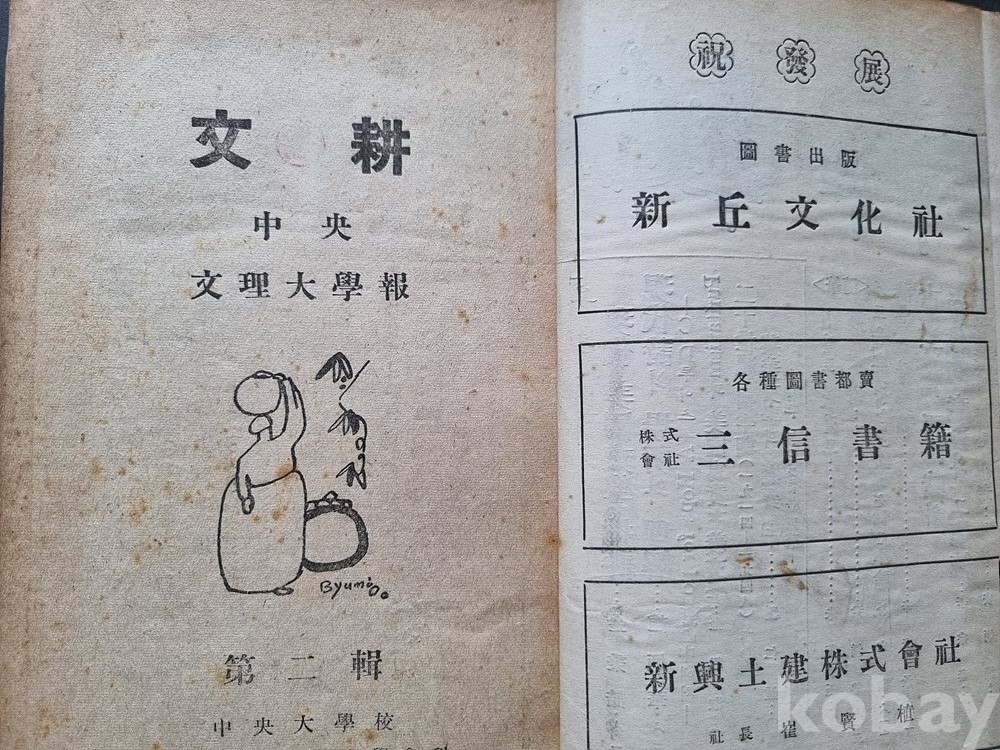 文耕
中央
文理大學報
Byumioo
第二輯
中央大學校
祝發展
圖書出版
新丘文化社
各種圖書都賣
株式會社 三信書籍
新興土建株式會社
社長 崔賢植
kobay